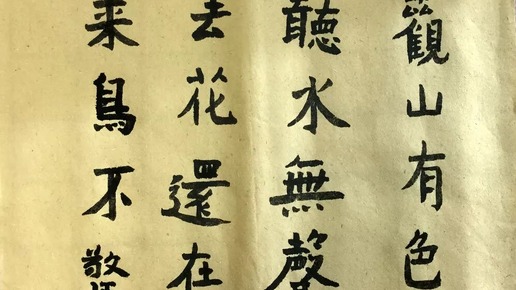 觀山有色
聽水無聲
去花還在
来鳥不
敬